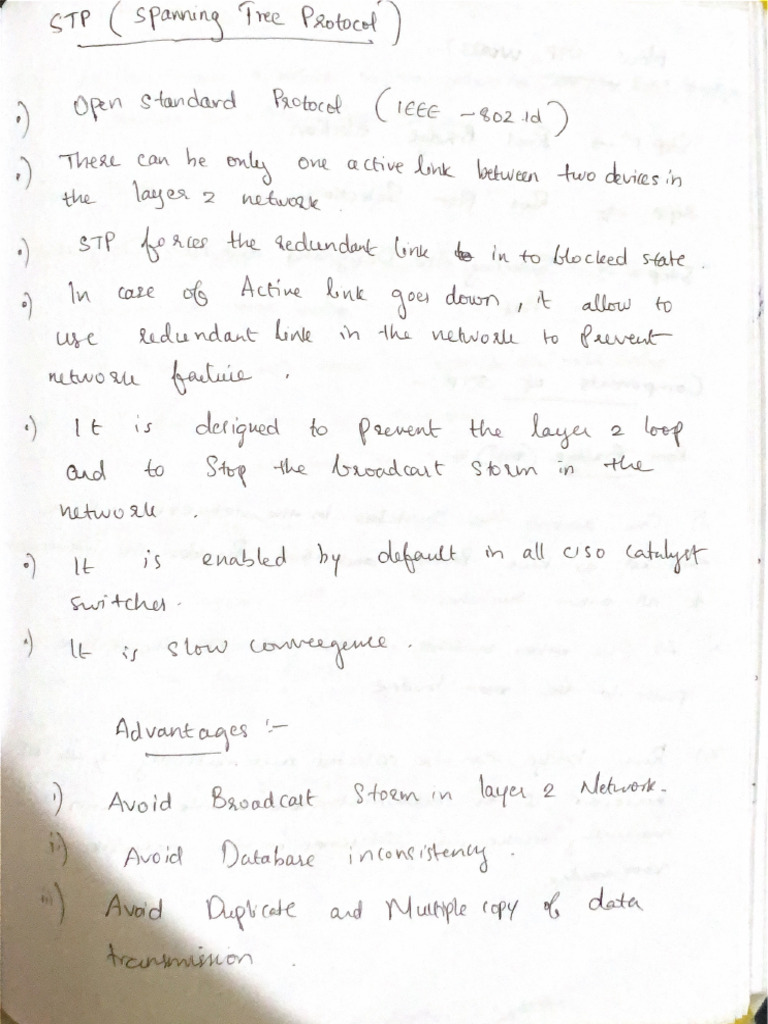 STP ( Spanning Tree Protocol )
•) Open Standard Protocol ( IEEE - 802.1d )
•) There can be only one active link between two devices in
the layer 2 network.
•) STP forces the redundant link in to blocked state.
•) In case of Active link goes down, it allow to
use redundant link in the network to Prevent
network failure.
•) It is designed to prevent the layer 2 loop
and to Stop the broadcast storm in the
network.
•) It is enabled by default in all ciso catalyst
switches.
•) It is slow convergence.
Advantages :-
i) Avoid Broadcast Storm in layer 2 Network.
ii) Avoid Database inconsistency.
iii) Avoid Duplicate and Multiple copy of data
transmission.